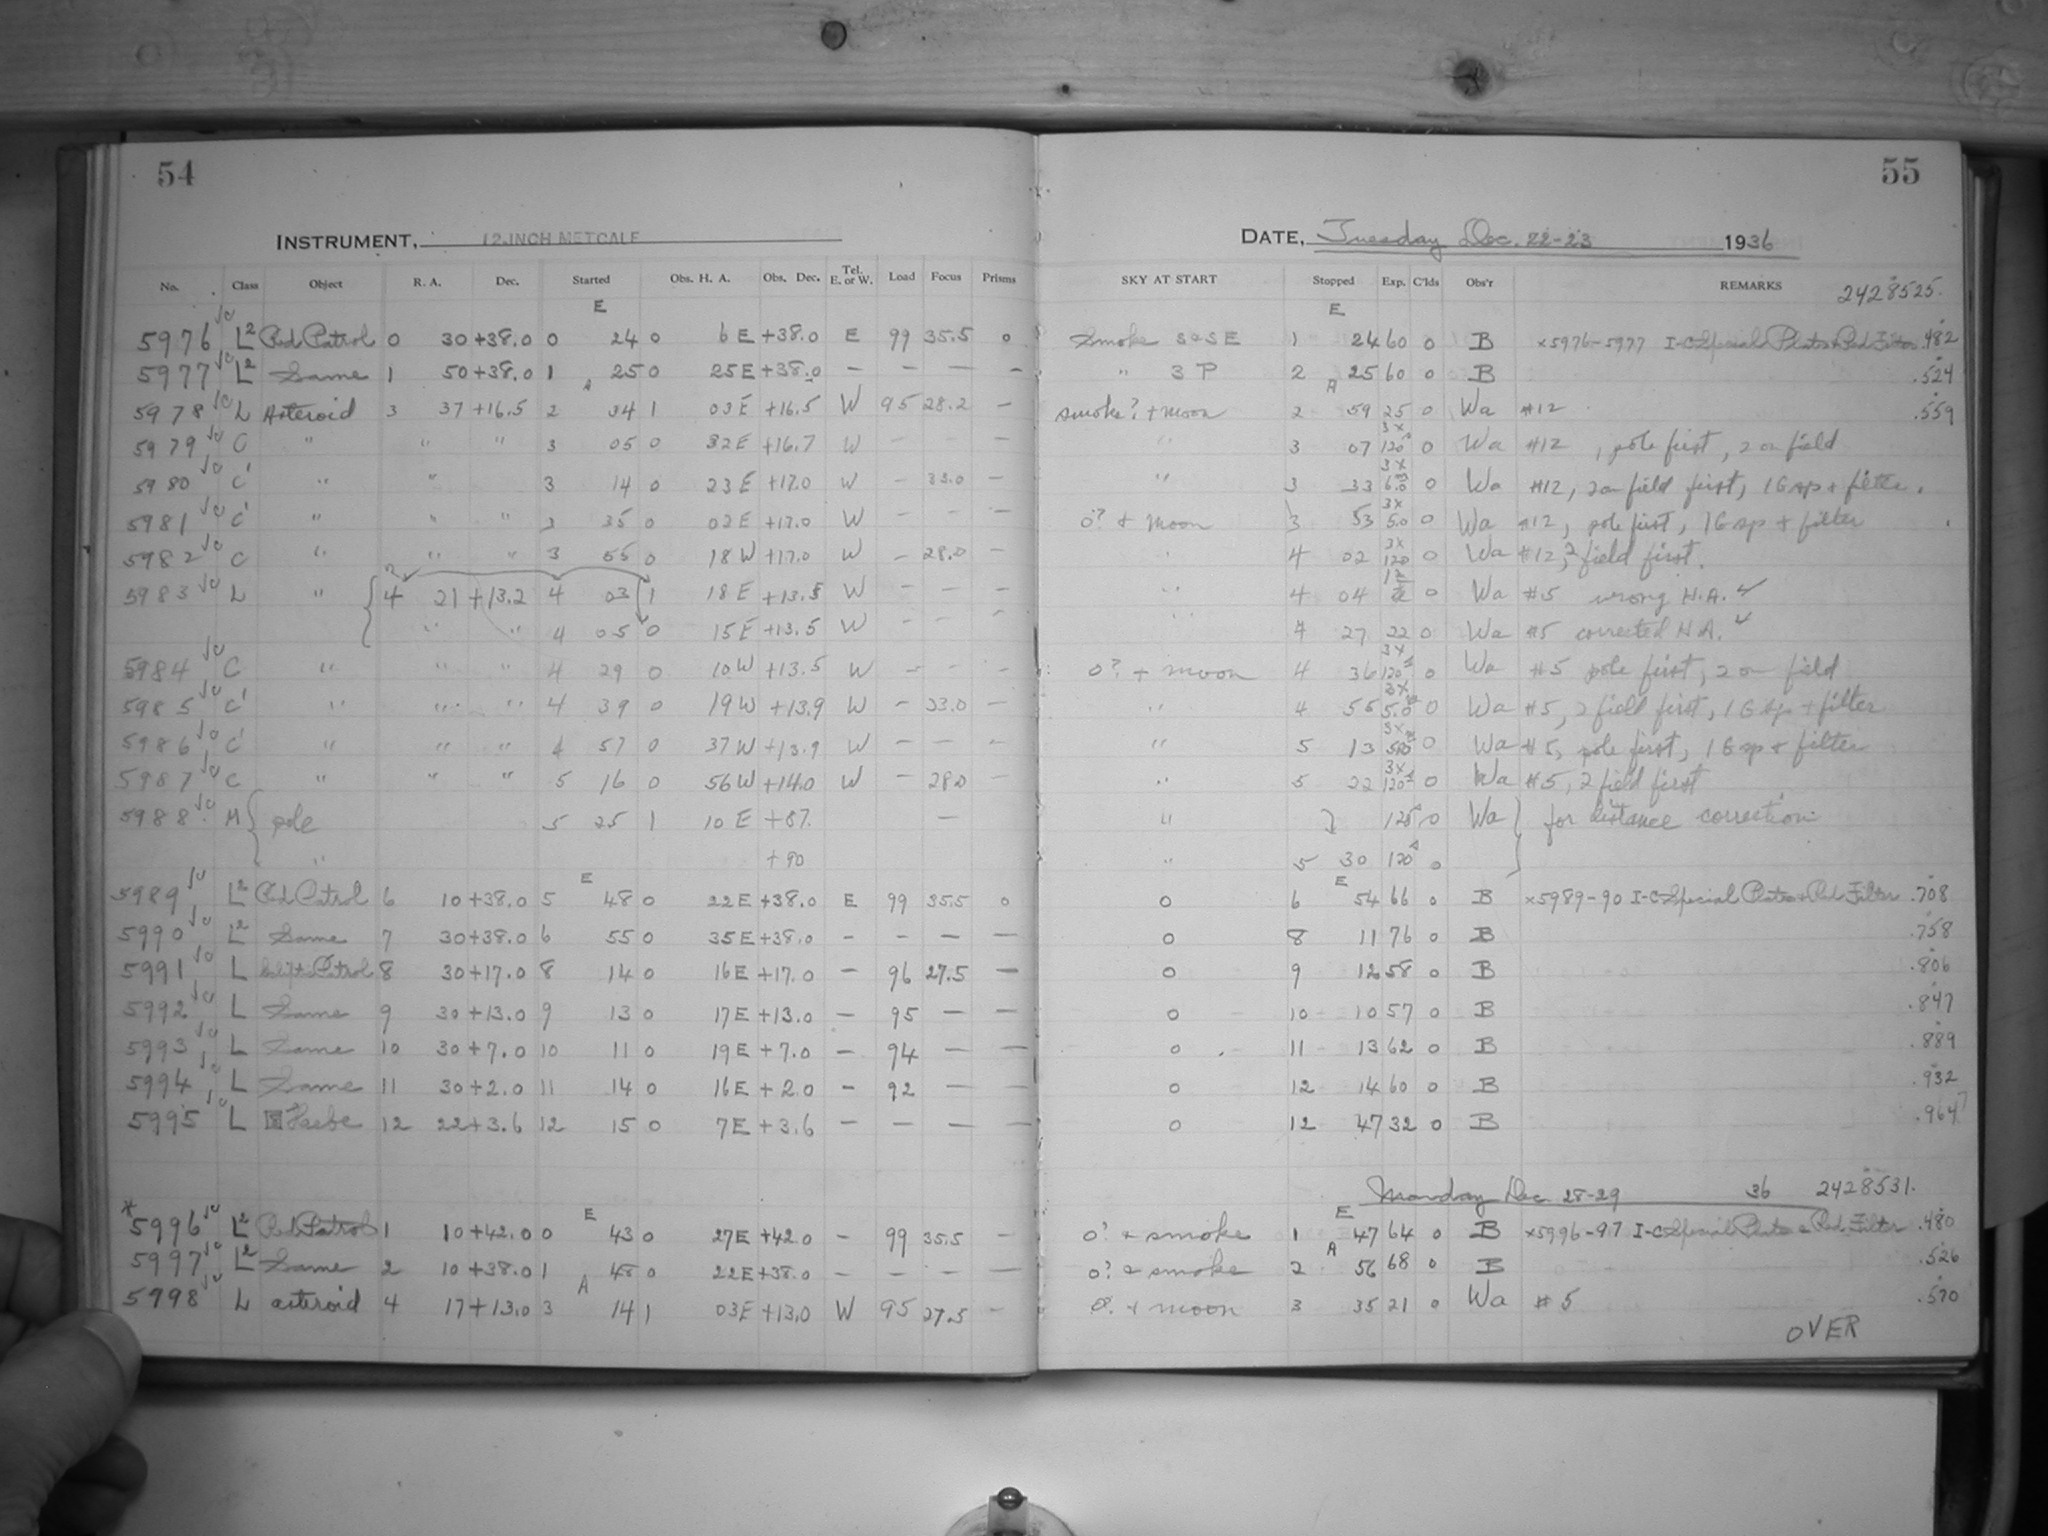 54
55
INSTRUMENT, 12-INCH METCALF
DATE, Tuesday Dec. 22-23 1936
No. Class Object R. A. Dec. Started Obs. H. A. Obs. Dec. Tel. E. or W. Load Focus Prisms SKY AT START Stopped Exp. C'lds Obs'r REMARKS 2428525.
E E
5976 L2 Red Patrol 0 30 +38.0 0 24 0 6 E +38.0 E 99 35.5 0 Smoke S&SE 1 24 60 0 B x5976-5977 I-C Special Plates Red Filter .482
5977 L2 Same 1 50 +38.0 1 25 0 25 E +38.0 — — — — " 3 P 2 25 60 0 B .524
A A
5978 L Asteroid 3 37 +16.5 2 34 1 03 E +16.5 W 95 28.2 — smoke? + moon 2 59 25 0 Wa #12 .559
5979 C " " " 3 05 0 32 E +16.7 W — — — " 3 07 3x 120s 0 Wa #12, pole first, 2 on field
5980 C' " " 3 14 0 23 E +17.0 W — 33.0 — " 3 33 3x 6.0m 0 Wa #12, 2 on field first, 1 G sp + filter.
5981 C' " " " 3 35 0 02 E +17.0 W — — — 0? + moon 3 53 3x 5.0 0 Wa #12, pole first, 1 G sp + filter
5982 C " " " 3 55 0 18 W +17.0 W — 28.0 — " 4 02 3x 120 0 Wa #12, 2 field first.
5983 L " 4 21 +13.2 4 03 1 18 E +13.5 W — — — " 4 04 0 Wa #5 wrong H.A. ✓
" " 4 05 0 15 E +13.5 W — — — " 4 27 22 0 Wa #5 corrected H.A. ✓
5984 C " " " 4 29 0 10 W +13.5 W — — — 0? + moon 4 36 3x 120s 0 Wa #5 pole first, 2 on field
5985 C' " " " 4 39 0 19 W +13.9 W — 33.0 — " 4 55 3x 5.0m 0 Wa #5, 2 field first, 1 G sp + filter
5986 C' " " " 4 57 0 37 W +13.9 W — — — " 5 13 3x 5.0m 0 Wa #5, pole first, 1 G sp + filter
5987 C " " " 5 16 0 56 W +14.0 W — 28.0 — " 5 22 3x 120s 0 Wa #5, 2 field first
5988 M pole 5 25 1 10 E +87. — " 120s 0 Wa for distance correction
" +90 " 5 30 120s 0
E E
5989 L2 Red Patrol 6 10 +38.0 5 48 0 22 E +38.0 E 99 35.5 0 0 6 54 66 0 B x5989-90 I-C Special Plates + Red Filter .708
5990 L2 Same 7 30 +38.0 6 55 0 35 E +38.0 — — — — 0 8 11 76 0 B .758
5991 L Patrol 8 30 +17.0 8 14 0 16 E +17.0 — 96 27.5 — 0 9 12 58 0 B .806
5992 L Same 9 30 +13.0 9 13 0 17 E +13.0 — 95 — — 0 10 10 57 0 B .847
5993 L Same 10 30 +7.0 10 11 0 19 E +7.0 — 94 — — 0 11 13 62 0 B .889
5994 L Same 11 30 +2.0 11 14 0 16 E +2.0 — 92 — — 0 12 14 60 0 B .932
5995 L Hebe 12 22 +3.6 12 15 0 7 E +3.6 — — — — 0 12 47 32 0 B .9647
Monday Dec 28-29 36 2428531.
E E
*5996 L2 Red Patrol 1 10 +42.0 0 43 0 27 E +42.0 — 99 35.5 — 0? + smoke 1 47 64 0 B x5996-97 I-C Special Plate & Red Filter .480
5997 L2 Same 2 10 +38.0 1 48 0 22 E +38.0 — — — — 0? & smoke 2 56 68 0 B .526
A A
5998 L asteroid 4 17 +13.0 3 14 1 03 E +13.0 W 95 27.5 — 0? + moon 3 35 21 0 Wa #5 .570
OVER